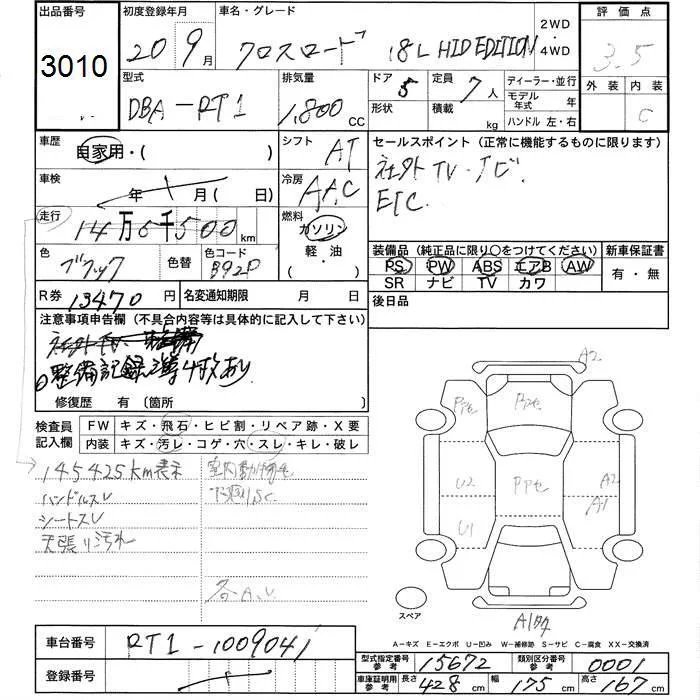 出品番号 初度登録年月 車名・グレード 2WD 4WD 評価点
3010 20 9月 クロスロード 18L HID EDITION 3.5
型式 排気量 ドア 定員 ディーラー・並行 外装 内装
DBA-RT1 1,800 CC 5 7人 モデル年式 年 C
形状 積載 kg ハンドル 左・右
車歴 自家用・( ) シフト AT セールスポイント(正常に機能するものに限ります)
車検 年 月(日) 冷房 AAC 社外TV・ナビ
ETC
走行 14万6千500km 燃料 ガソリン・軽・油・( )
色 ブラック 色替 色コード B92P
装備品(純正品に限り〇をつけてください) 新車保証書
PS PW ABS エアB AW 有・無
SR ナビ TV カワ
R券 13470円 名変通知期限 月 日 後日品
注意事項申告欄(不具合内容等は具体的に記入して下さい)
整備記録簿4枚あり
修復歴 有〔箇所
検査員記入欄 FW キズ・飛石・ヒビ割・リペア跡・X要
内装 キズ・汚レ・コゲ・穴・スレ・キレ・破レ
145425km表示 室内動物毛
ハンドルスレ
シートスレ
天張り汚れ
各A.U
A2
Pｱｾ Pｱｾ
U2 Pｱｾ A2
U1 A1
スペア
A-キズ E-エクボ U-凹み W-補修跡 S-サビ C-腐食 XX-交換済
車台番号 RT1-1009041
型式指定番号 参考 15672 類別区分番号 参考 0001
登録番号
車庫証明用 参考 長さ 428cm 幅 175cm 高さ 167cm